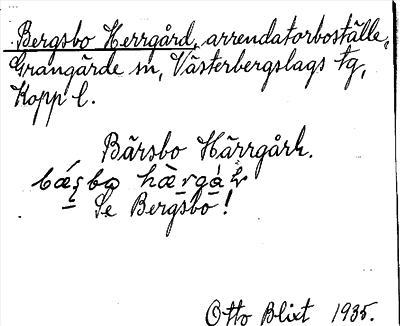 Bergsbo Herrgård, arrendatorboställe,
Grangärde sn, Västerbergslags tg,
Kopp l.
Bärsbo Härrgårh.
Se Bergsbo!
Otto Blixt 1935.